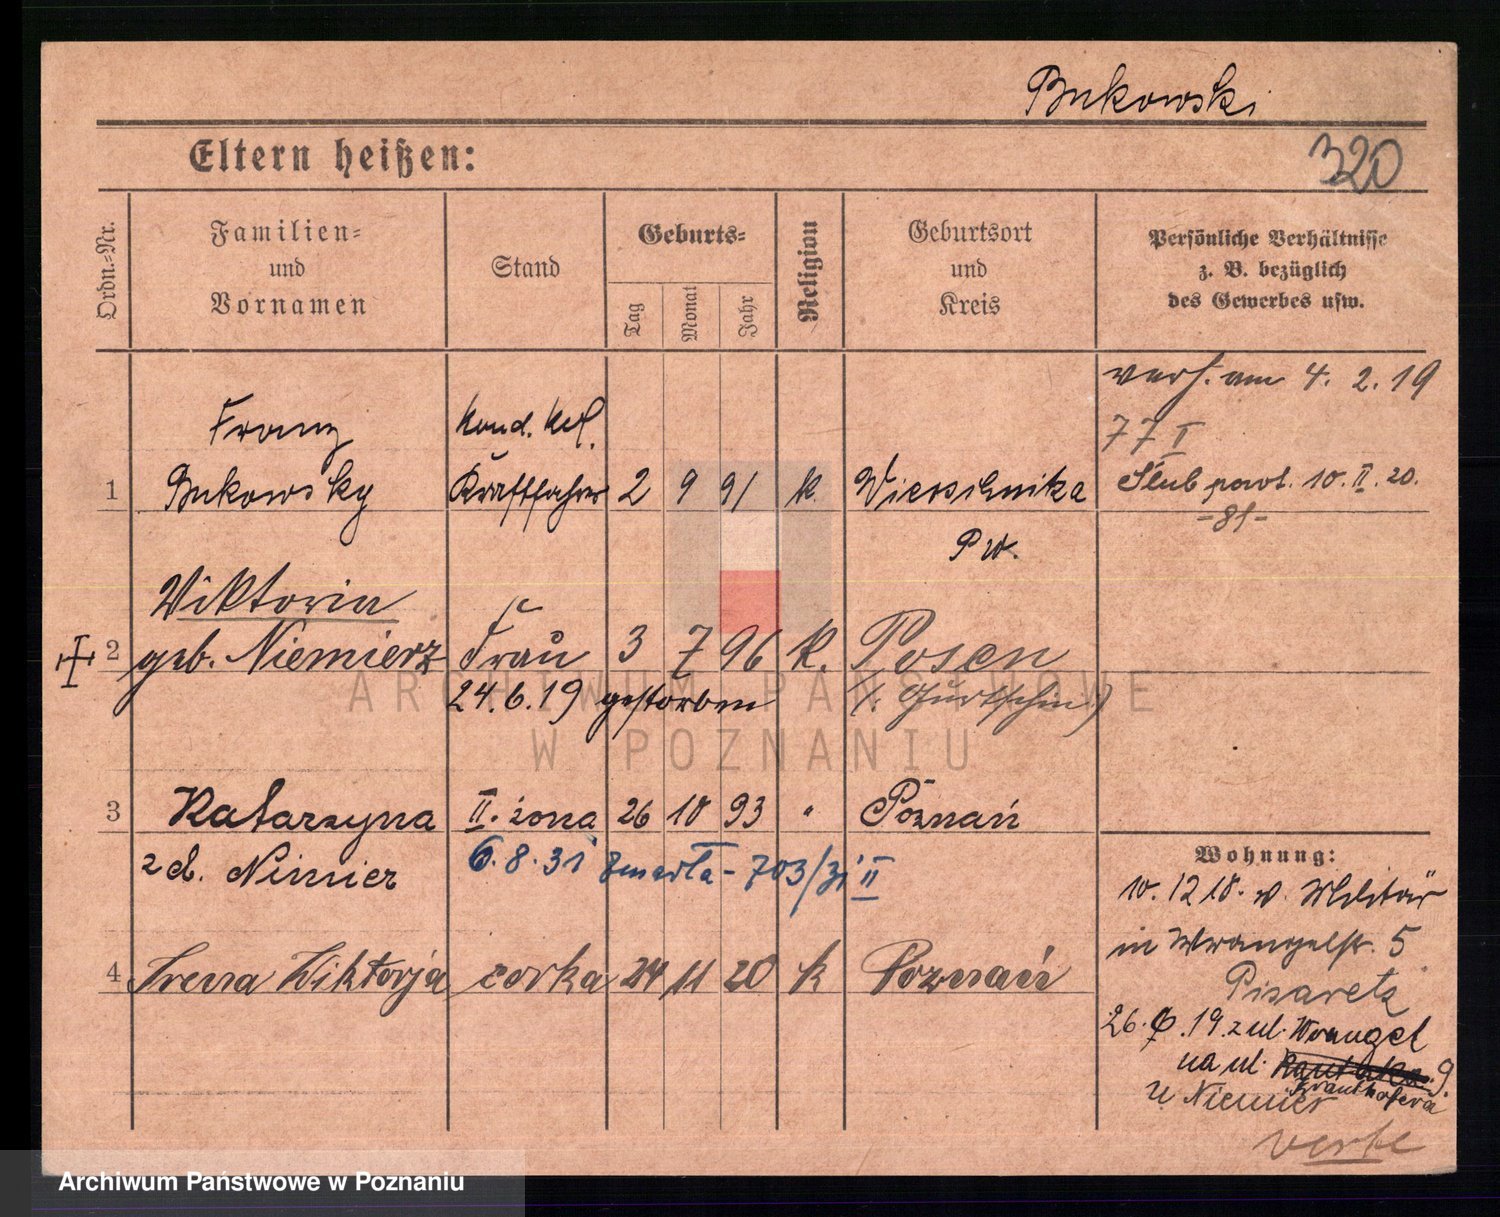 Bukowski
Eltern heißen:
320
Ordn.-Nr.
Familien- und Vornamen
Stand
Geburts-
Tag
Monat
Jahr
Religion
Geburtsort und Kreis
Persönliche Verhältnisse z. B. bezüglich des Gewerbes usw.
verh. am 4. 2. 19
77 I
Ślub powt. 10. II. 20.
-81-
Franz
Kond. Kel.
1 Bukowsky Kraftfahrer 2 9 91 k.
Pw.
Viktoria
2 geb. Niemierz Frau 3 7 96 k. Posen
24.6.19 gestorben (k. Gurtschin)
3 Katarzyna II. żona 26 10 93 " Poznań
z d. Niemier 6.8.31 zmarła - 703/31 II
4 Irena Wiktorja corka 24 11 20 k Poznań
Wohnung:
10. 12 18. v. Militär
in Wrangelstr. 5
26. .19. z ul. Wrangel
na ul. 9.
Krauthofera
u Niemier
verte
ARCHIWUM PAŃSTWOWE
W POZNANIU
Archiwum Państwowe w Poznaniu